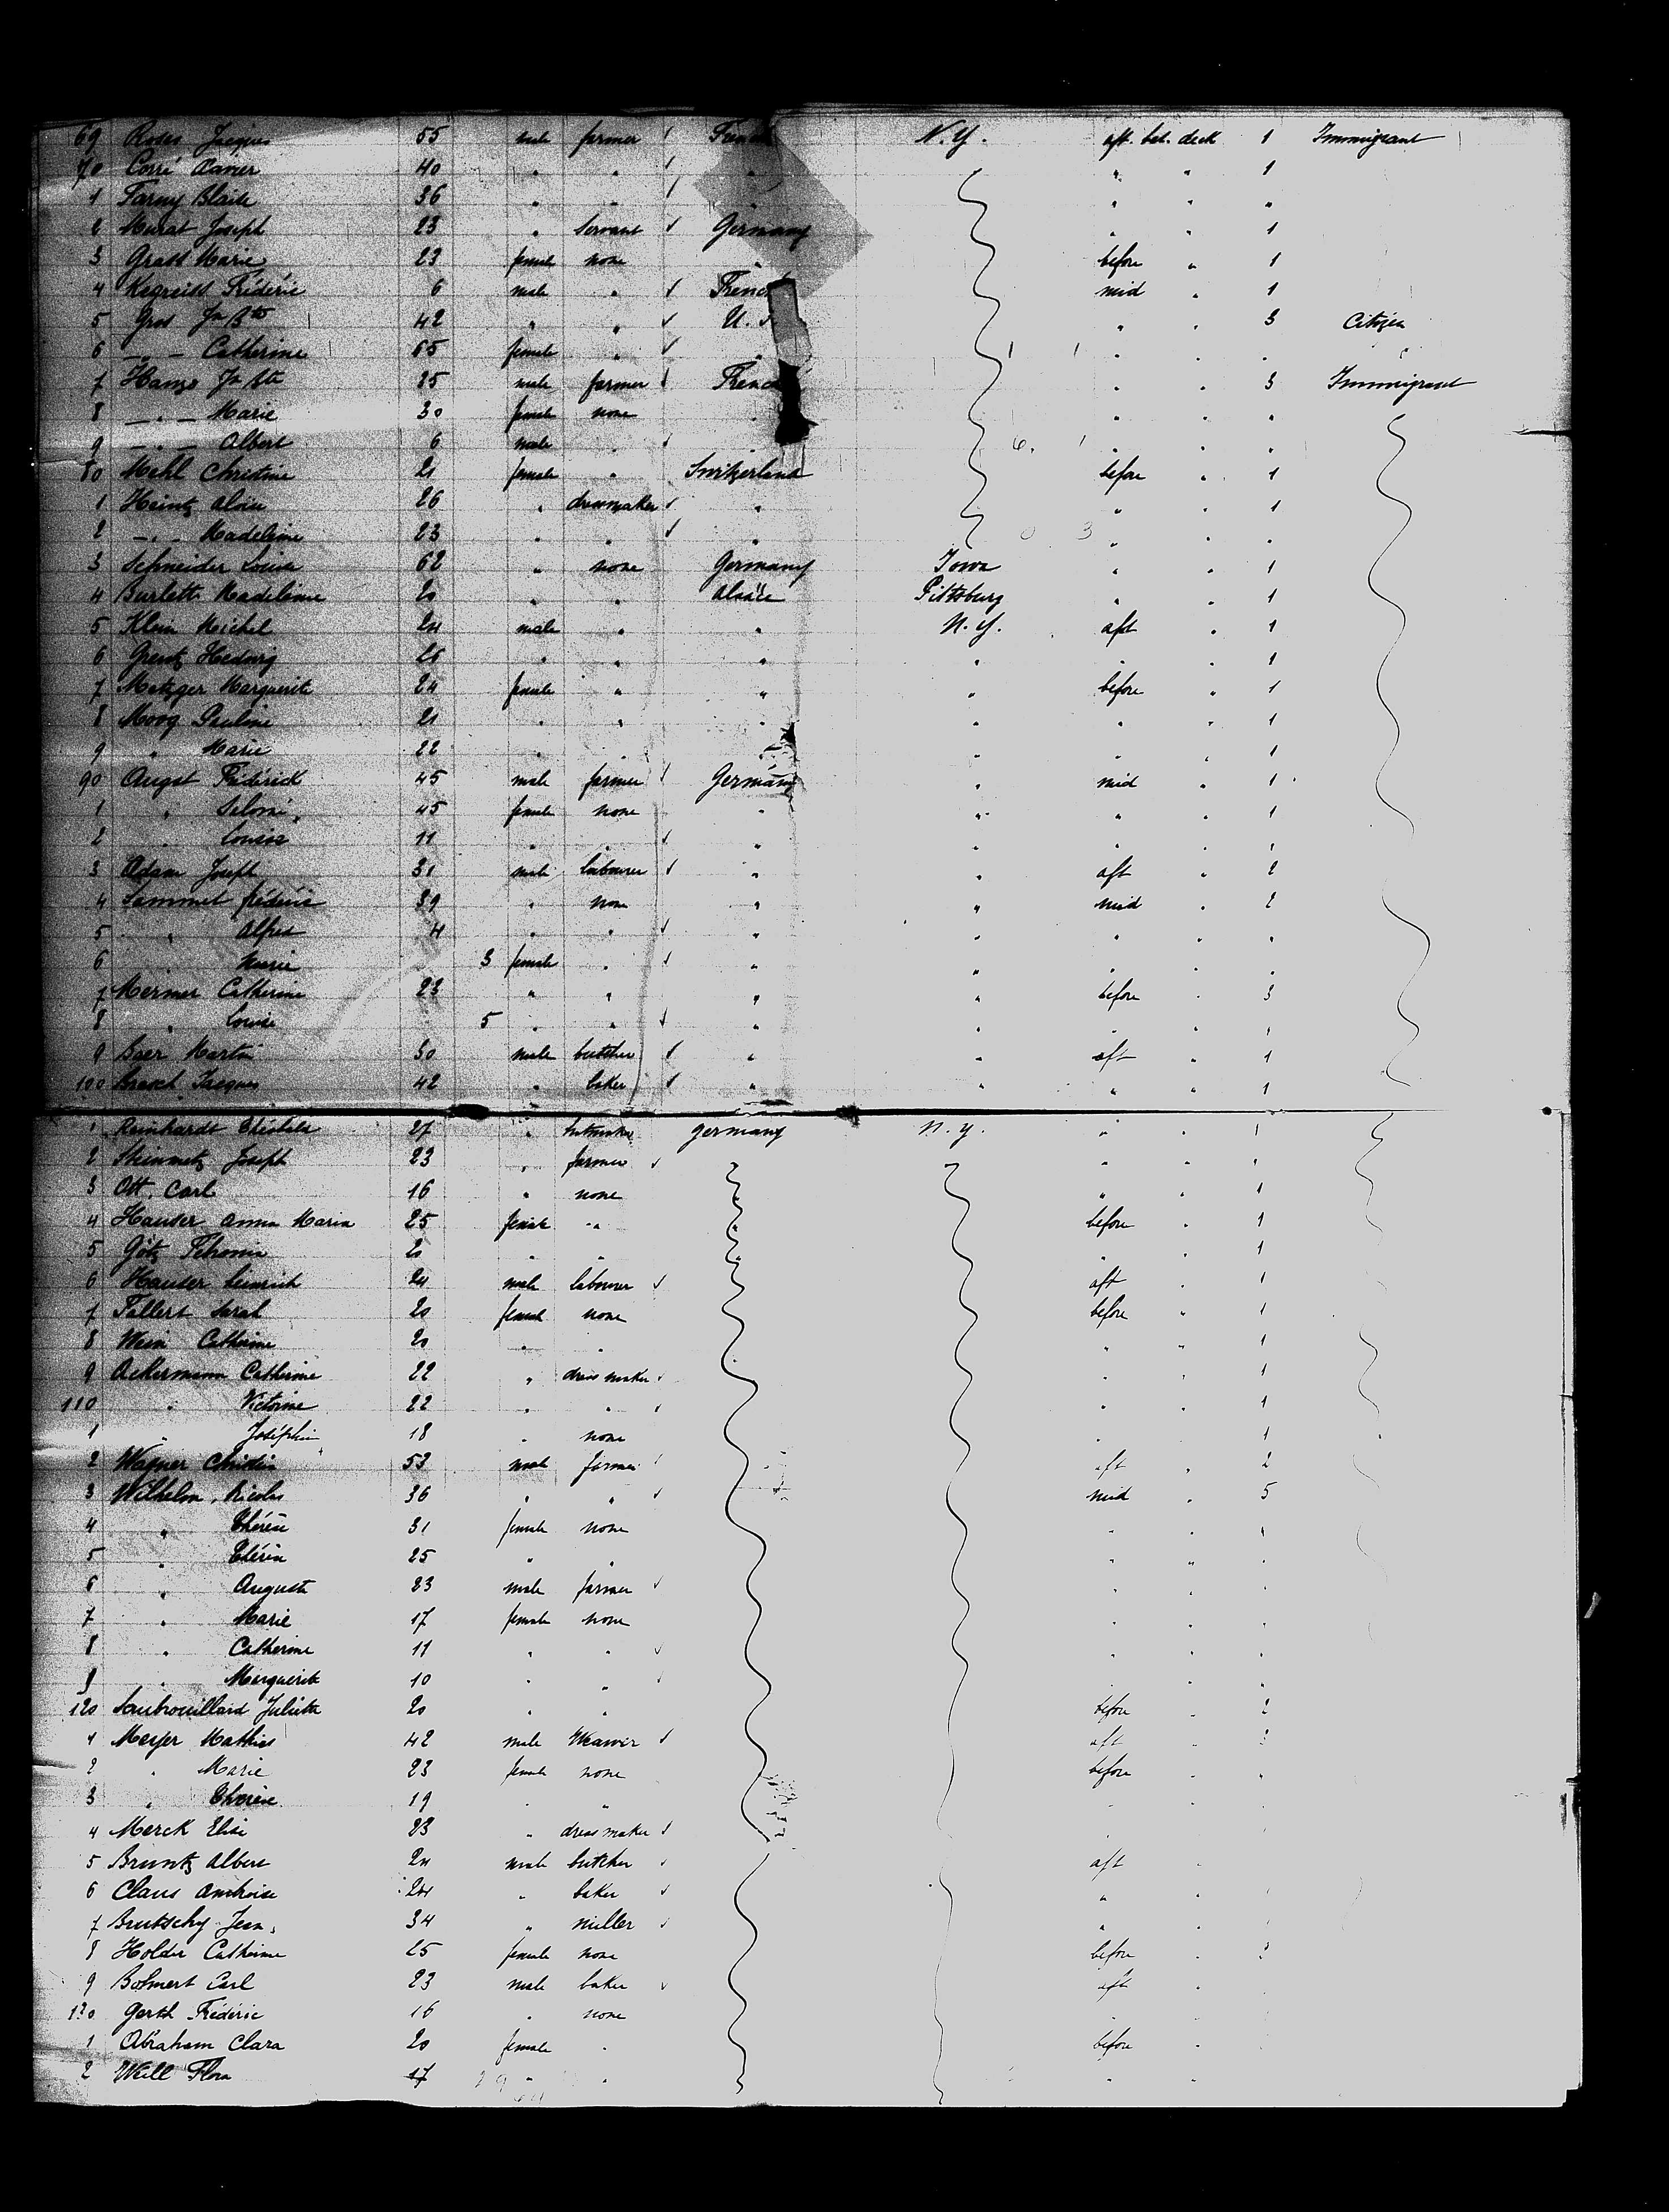 69 Jacques 55 male farmer French N.Y. aft. bet. deck 1 Immigrant
70 Xavier 40 " " " " " 1
1 Farny Blaise 36 " " " " " "
2 Murat Joseph 23 " servant Germany " " 1
3 Grass Marie 23 female none " before " 1
4 Frédéric 6 male " French mid " 1
5 Gros Jn Bte 42 " " U.S. " " 3 Citizen
6 — " — Catherine 65 female " " " " "
7 Jn Bte 35 male farmer French " " 3 Immigrant
8 — " — Marie 30 female none " " " "
9 — " — Albert 6 male " " " " "
80 Mehl Christine 21 female " Switzerland before " 1
1 Heintz 26 " dressmaker " " " 1
2 — " — Madeleine 23 " " " " " "
3 Schneider Louise 62 " none Germany Iowa " " 1
4 Burlett Madeleine 20 " " Alsace Pittsburg " " 1
5 Klein Michel 24 male " " N.Y. aft " 1
6 Hedwig " " " " " " 1
7 Metzger Marguerite 24 female " " " before " 1
8 Moog Pauline 21 " " " " " " 1
9 " Marie 22 " " " " " " 1
90 Augst Fréderick 45 male farmer Germany " mid " 1
1 " Salomé 45 female none " " " " 1
2 " Louise 11 " " " " " " "
3 Adam Joseph 31 male labourer " " aft " 2
4 Sammet Frédéric 39 " none " " mid " 2
5 " Alfred 4 " " " " " " "
6 " Marie 3 female " " " " " "
7 Mermer Catherine 23 " " " " before " 3
8 " Louise 5 " " " " " " "
9 Baer Martin 30 male butcher " " aft " 1
100 Jacques 42 " baker " " " " 1
1 Reinhardt 27 " Germany N.Y. " " 1
2 Steinmetz Joseph 23 " farmer " " 1
3 Ott Carl 16 " none " " 1
4 Hauser Anna Maria 25 female " before " 1
5 Götz 20 " " " " 1
6 Hauser Heinrich 24 male labourer aft " 1
7 Fallert Sarah 20 female none before " 1
8 Catherine 20 " " " " 1
9 Ackermann Catherine 22 " dress maker " " 1
110 " Victorine 22 " " " " 1
1 " Joséphine 18 " none " 1
2 Wagner 53 male farmer aft " 2
3 Wilhelm Nicolas 36 " " mid " 5
4 " Thérèse 31 female none " " "
5 " 25 " " " " "
6 " Auguste 23 male farmer " " "
7 " Marie 17 female none " " "
8 " Catherine 11 " " " " "
9 " Marguerite 10 " " " " "
120 Juliette 20 " " before " 2
1 Meyer Mathias 42 male Weaver aft " 3
2 " Marie 23 female none before " "
3 " Thérèse 19 " " " " "
4 Merck Elise 23 " dress maker " "
5 Bruntz Albert 24 male butcher aft "
6 Claus Ambroise 24 " baker " "
7 Brutschy Jean 34 " miller " "
8 Holder Catherine 25 female none before "
9 Bohnert Carl 23 male baker aft "
130 Gerth Frédéric 16 " none " "
1 Abraham Clara 20 female " before "
2 Weill Flora 17 " " " "